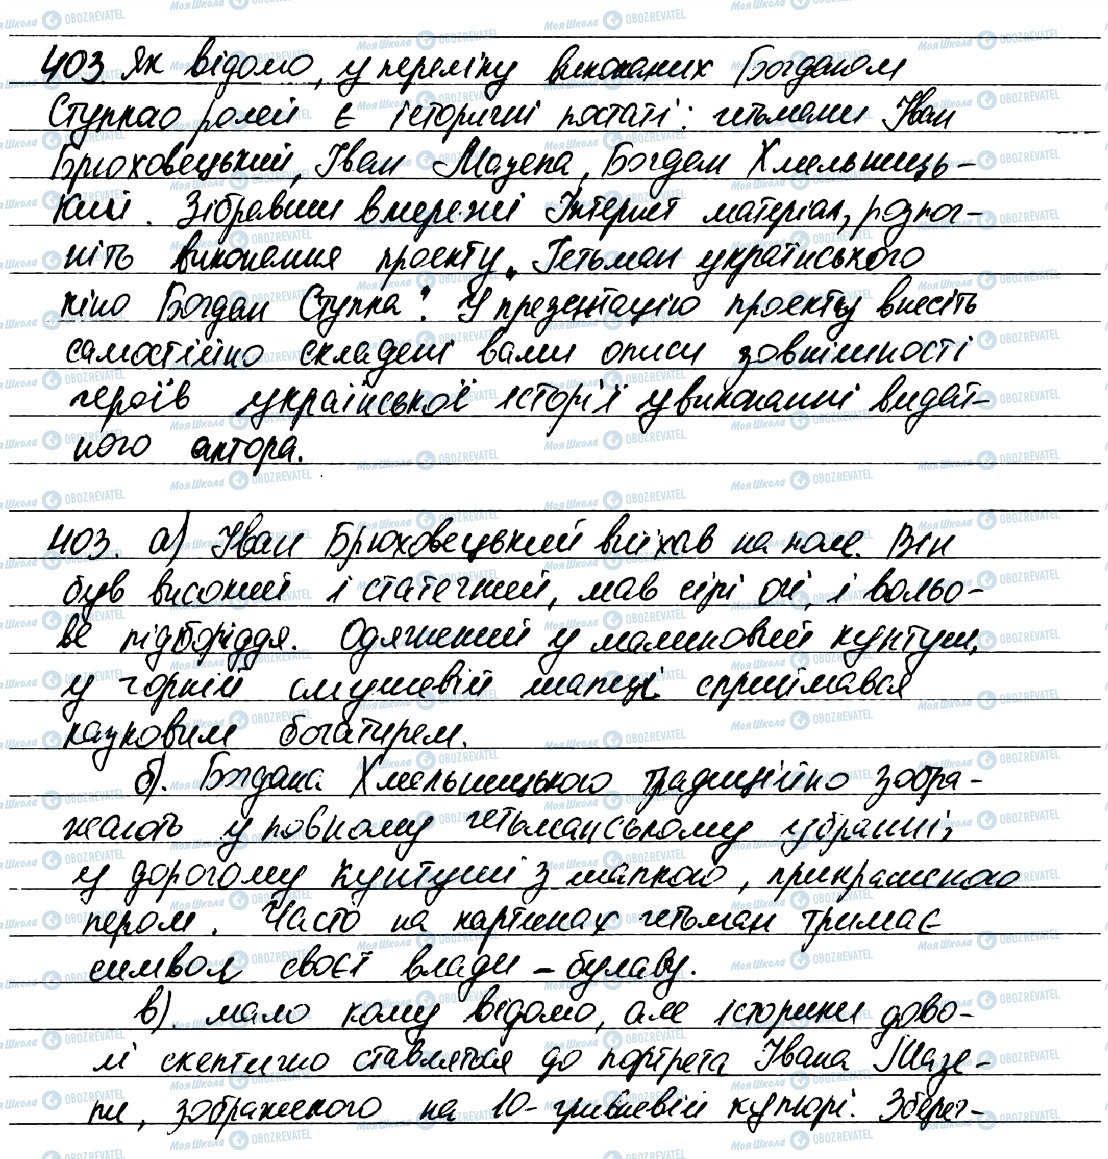 403. Як відомо, у переліку виконаних Богданом
Ступкою ролей є історичні постаті: гетьмани Іван
Брюховецький, Іван Мазепа, Богдан Хмельниць-
кий. Зібравши в мережі Інтернет матеріал, розпоч-
ніть виконання проекту „Гетьман українського
кіно Богдан Ступка". У презентацію проекту внесіть
самостійно складені вами описи зовнішності
героїв української історії у виконанні видат-
ного актора.
403. а) Іван Брюховецький виїхав на поле. Він
був високий і статечний, мав сірі очі, і вольо-
ве підборіддя. Одягнений у малиновий кунтуш,
у чорній смушевій шапці сприймався
казковим богатирем.
б). Богдана Хмельницького традиційно зобра-
жають у повному гетьманському убранні,
у дорогому кунтуші з шапкою, прикрашеною
пером. Часто на картинах гетьман тримає
символ своєї влади – булаву.
в). мало кому відомо, але історики дово-
лі скептично ставляться до портрета Івана Мазе-
пи, зображеного на 10-гривневій купюрі. Зберег-